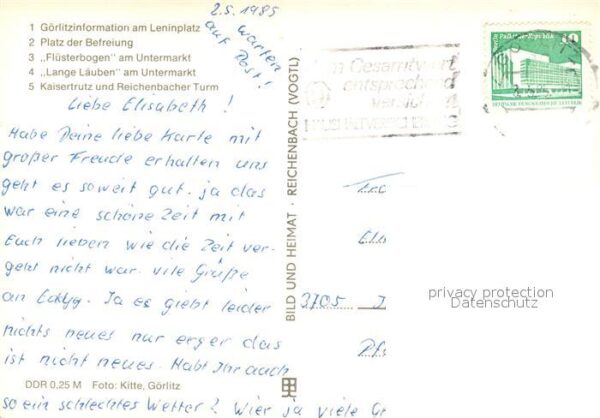 2.5.1985
warten
auf Post!
1 Görlitzinformation am Leninplatz
2 Platz der Befreiung
3 „Flüsterbogen" am Untermarkt
4 „Lange Läuben" am Untermarkt
5 Kaisertrutz und Reichenbacher Turm
Liebe Elisabeth!
Habe Deine liebe Karte mit
großer Freude erhalten uns
geht es soweit gut. ja das
war eine schöne Zeit mit
Euch lieben wie die Zeit ver-
geht nicht war. vile Grüße
an Ja es giebt leider
nichts neues nur erger das
ist nicht neues. Habt Ihr auch
so ein schlechtes Wetter? Wier ja viele Gr
DDR 0,25 M Foto: Kitte, Görlitz
BILD UND HEIMAT · REICHENBACH (VOGTL)
n Gesamtwert
entsprechend
versichert
HAUSHALTVERSICHERUNG
Palast der Republik
10
DEUTSCHE DEMOKRATISCHE REPUBLIK
3705
privacy protection
Datenschutz